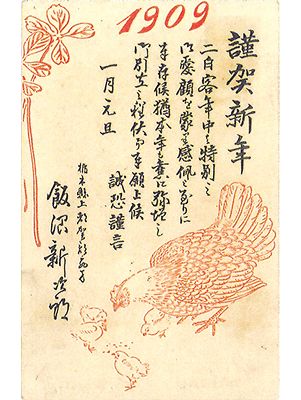 1909
謹賀新年
二白客年中ハ特別之
御愛顧を蒙り感佩之至りに
奉存候猶本年も尚
御引立之程伏而奉願上候
誠恐謹言
一月元旦
栃木縣上都賀郡
飯沼新次郎